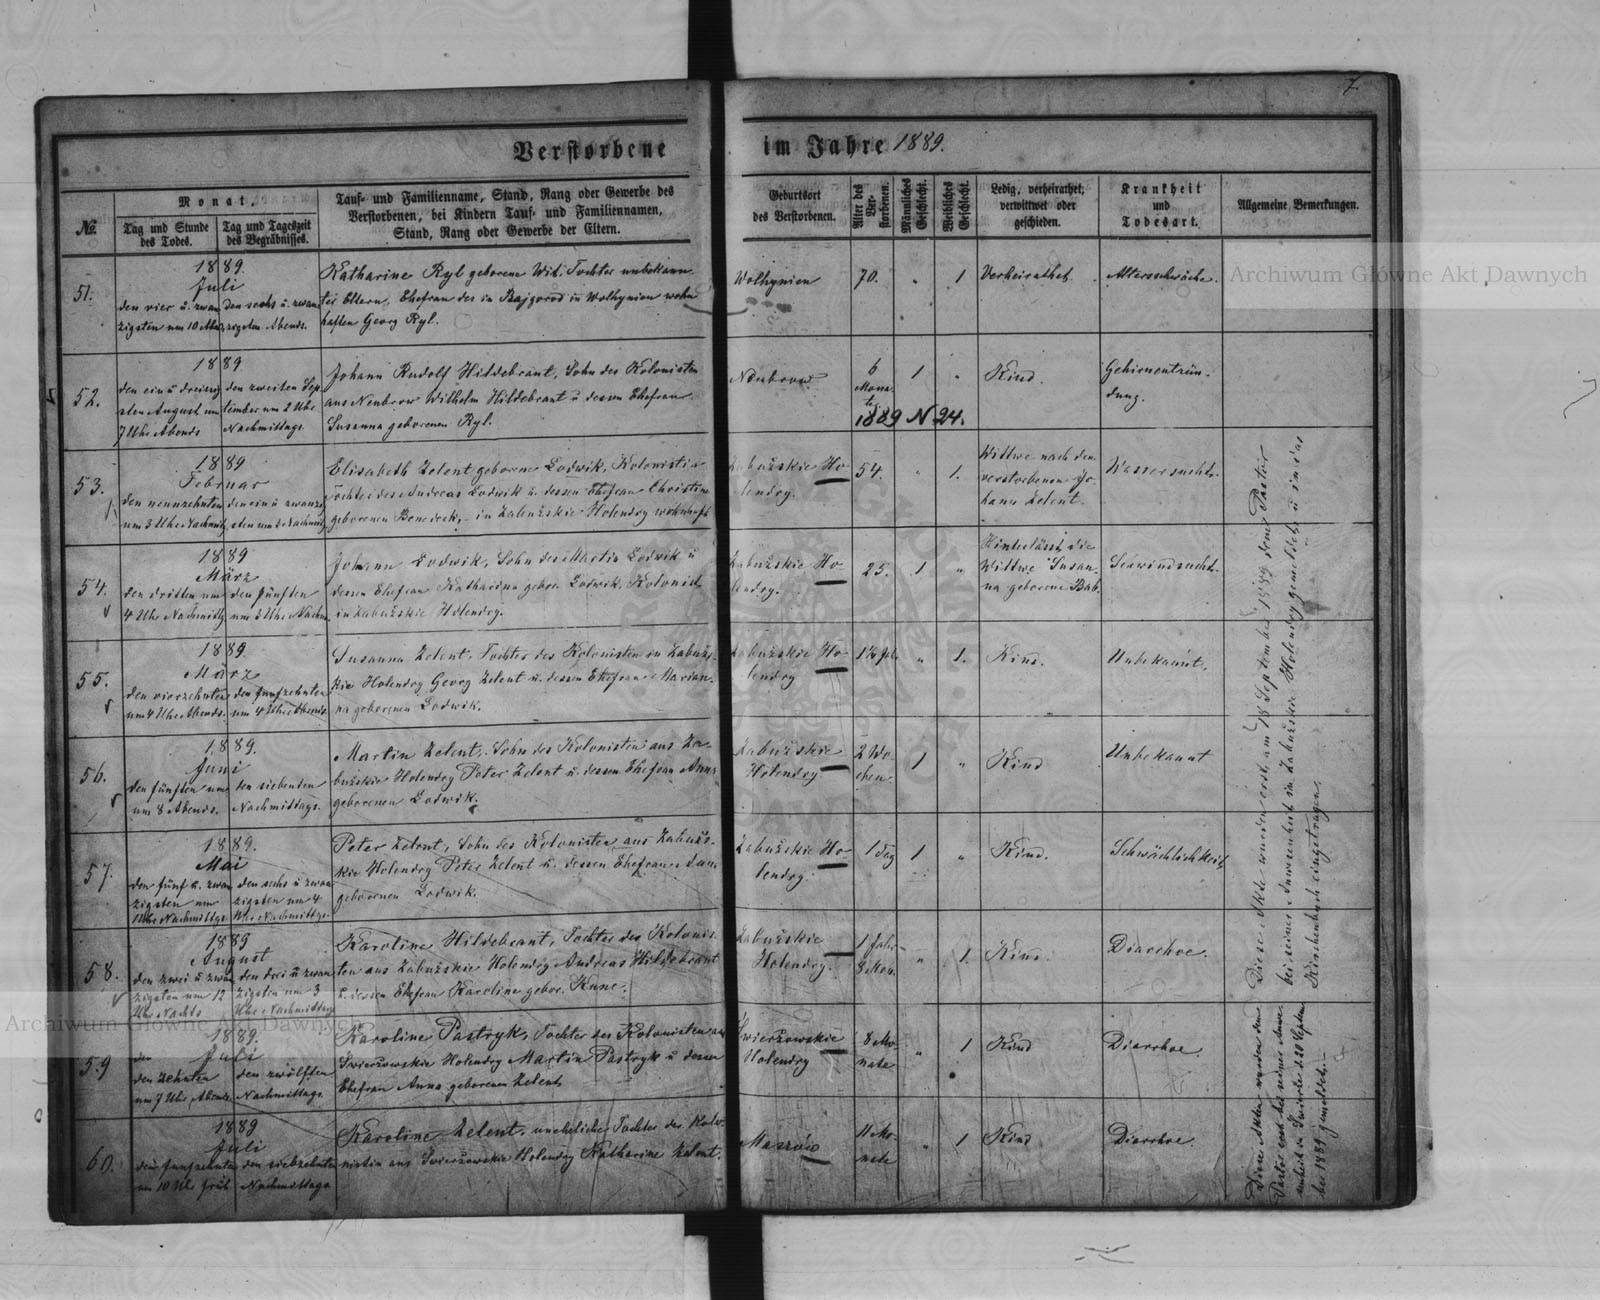 7
Verstorbene im Jahre 1889.
№
Monat,
Tag und Stunde des Todes.
Tag und Tageszeit des Begräbnisses.
Tauf- und Familienname, Stand, Rang oder Gewerbe des
Verstorbenen, bei Kindern Tauf- und Familiennamen,
Stand, Rang oder Gewerbe der Eltern.
Geburtsort
des Verstorbenen.
Alter des Verstorbenen.
Männliches Geschlecht.
Weibliches Geschlecht.
Ledig, verheirathet,
verwittwet oder
geschieden.
Krankheit
und
Todesart.
Allgemeine Bemerkungen.
51.
1889.
Juli
den vier u. zwan
zigsten um 10 Abds.
den sechs u. zwan
zigsten Abends.
Katharine Ryl geborene Wit, Tochter unbekann
ter Eltern, Ehefrau des in Bajgorod in Wolhynien wohn
haften Georg Ryl.
Wolhynien
70.
"
1
Verheirathet.
Altersschwäche.
52.
1889
den ein u dreissig
sten August um
7 Uhr Abends
den zweiten Sep
tember um 2 Uhr
Nachmittags.
Johann Rudolf Hildebrant, Sohn des Kolonisten
aus Neubrow Wilhelm Hildebrant u dessen Ehefrau
Susanna geborenen Ryl.
Neubrow
6
Mona
te
1
"
Kind.
Gehirnentzün-
dung.
1889 N 24.
53.
1889
Februar
den neunzehnten
um 3 Uhr Nachmittg
den ein u zwanzig
sten um 2 Nachmittg
Elisabeth Zelent geborene Ludwik, Kolonistin
Tochter des Andreas Ludwik u. dessen Ehefrau Christine
geborenen Benedeck, in Zabużskie Holendry wohnhaft
Zabużskie Ho
lendry.
54.
"
1.
Wittwe nach dem
verstorbenen Jo-
hann Zelent.
Wassersucht.
54.
1889
März
den dritten um
4 Uhr Nachmittg
den fünften
um 3 Uhr Nachm.
Johann Ludwik, Sohn des Martin Ludwik u
dessen Ehefrau Katharina gebor. Ludwik, Kolonist
in Zabużskie Holendry.
Zabużskie Ho
lendry.
25.
1
"
Hinterlässt die
Wittwe Susan-
na geborene Bab.
Schwindsucht.
55.
1889.
März
den vierzehnten
um 4 Uhr Abends.
den fünfzehnten
um 4 Uhr Abends.
Susanna Zelent, Tochter des Kolonisten in Zabużs-
kie Holendry Georg Zelent u. dessen Ehefrau Marian-
na geborenen Ludwik.
Zabużskie Ho
lendry
1½ Ja.
"
1.
Kind.
Unbekannt.
56.
1889.
Juni
den fünften um
um 8 Abends.
den siebenten
Nachmittags.
Martin Zelent, Sohn des Kolonisten aus Za-
bużskie Holendry Peter Zelent u. dessen Ehefrau Anna
geborenen Ludwik.
Zabużskie
Holendry
2 Wo
chen.
1
"
Kind
Unbekannt
57.
1889.
Mai
den fünf u. zwan
zigsten um
Uhr Nachmittgs.
den sechs u zwan
zigsten um 4
Uhr Nachmittgs.
Peter Zelent, Sohn des Kolonisten aus Zabużs-
kie Holendry Peter Zelent u. dessen Ehefrau Anna
geborenen Ludwik.
Zabużskie Ho
lendry.
1 Tag
1
"
Kind.
Schwächlichkeit
58.
1889
August
den zwei u zwan
zigsten um 12
Uhr Nachts
den drei u zwan
zigsten um 3
Uhr Nachmittag
Karoline Hildebrant, Tochter des Kolonis-
ten aus Zabużskie Holendry Andreas Hildebrant
u. dessen Ehefrau Karoline gebor. Kunc.
Zabużskie
Holendry.
1 Jahr
8 Mon.
"
1.
Kind.
Diarrhoe.
59
1889.
den Juli
den zehnten
um 7 Uhr Abend
den zwölften
Nachmittags.
Karoline Pastryk, Tochter des Kolonisten aus
Swierżowskie Holendry Martin Pastryk u dessen
Ehefrau Anna geborenen Zelent
Swierżowskie
Holendry
8 Mo-
nate
"
1
Kind
Diarrhoe.
60.
1889
Juli
den fünfzehnten
um 10 Uhr früh
den siebzehnten
Nachmittags
Karoline Zelent, uneheliche Tochter der Kolo-
nistin aus Swierżowskie Holendry Katharine Zelent.
Maszów
11 Mo-
nate
"
1
Kind
Diarrhoe.
Diese Akte wurden erst am 18 September 1889 dem Pastor
bei seiner Anwesenheit in Zabużskie Holendry gemeldet u in das
Kirchenbuch eingetragen
Diese Akten wurden dem
Pastor erst bei seiner Anwe-
senheit in Swierże d. 20 Septem
ber 1889 gemeldet.
Archiwum Główne Akt Dawnych
Archiwum Główne Akt Dawnych